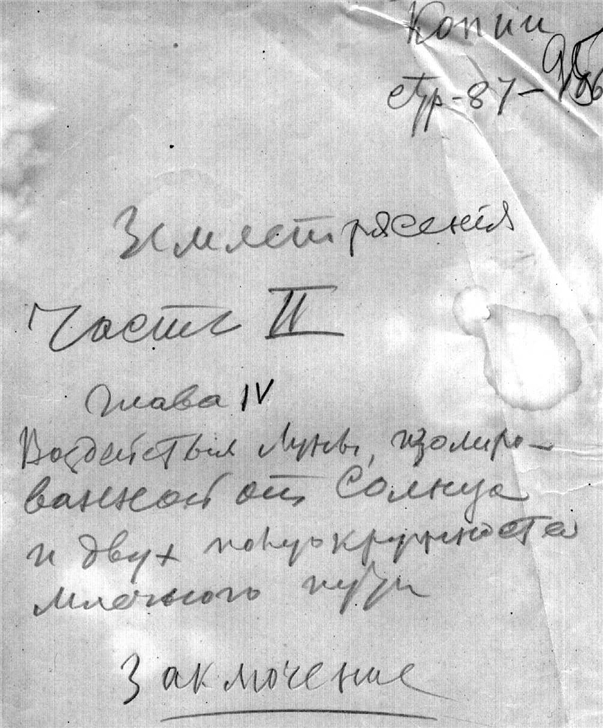 Копии
стр-87-
Землетрясения
Часть II
Глава IV
Воздействия Луны, изолиро-
ванной от Солнца
и двух полуокружностей
млечного пути
Заключение